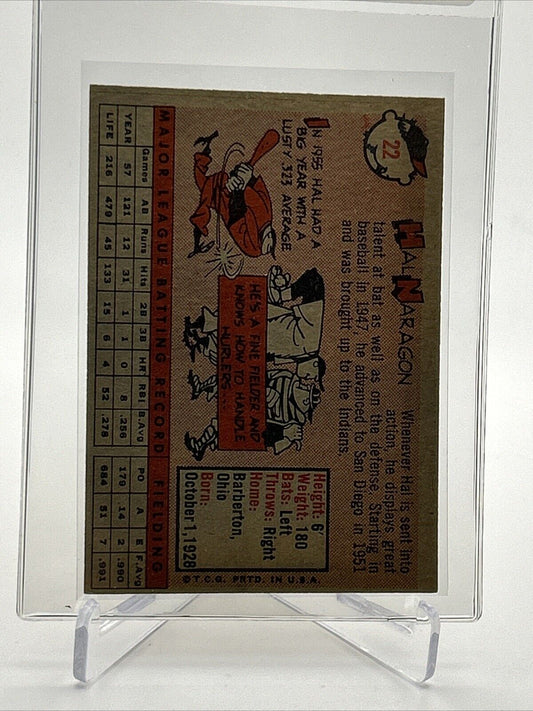 22
HAL NARAGON
Whenever Hal is sent into
action, he displays great
talent at bat as well as on the defense. Starting in
baseball in 1947, he advanced to San Diego in 1951
and was brought up to the Indians.
IN 1955 HAL HAD A
BIG YEAR WITH A
LUSTY .323 AVERAGE
HE'S A FINE FIELDER AND
KNOWS HOW TO HANDLE
HURLERS...
Height: 6'
Weight: 180
Bats: Left
Throws: Right
Home:
Barberton,
Ohio
Born:
October 1, 1928
MAJOR LEAGUE BATTING RECORD FIELDING
Games AB Runs Hits 2B 3B HR RBI B.Avg PO A E F.Avg
YEAR 57 121 12 31 1 1 0 8 .256 179 14 2 .990
LIFE 216 479 45 133 15 6 4 52 .278 684 51 7 .991
© T.C.G. PRTD. IN U.S.A.